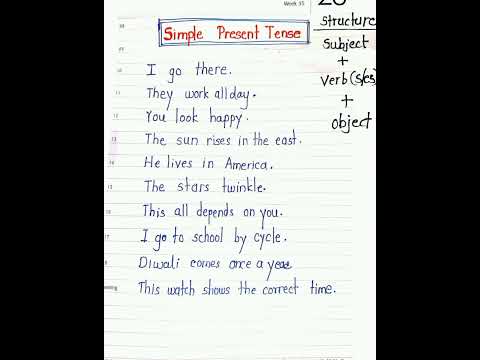 Week 35
Simple Present Tense
structure
subject
+
verb (s/es)
+
object
I go there.
They work all day.
You look happy.
The sun rises in the east.
He lives in America.
The stars twinkle.
This all depends on you.
I go to school by cycle.
Diwali comes once a year
This watch shows the correct time.